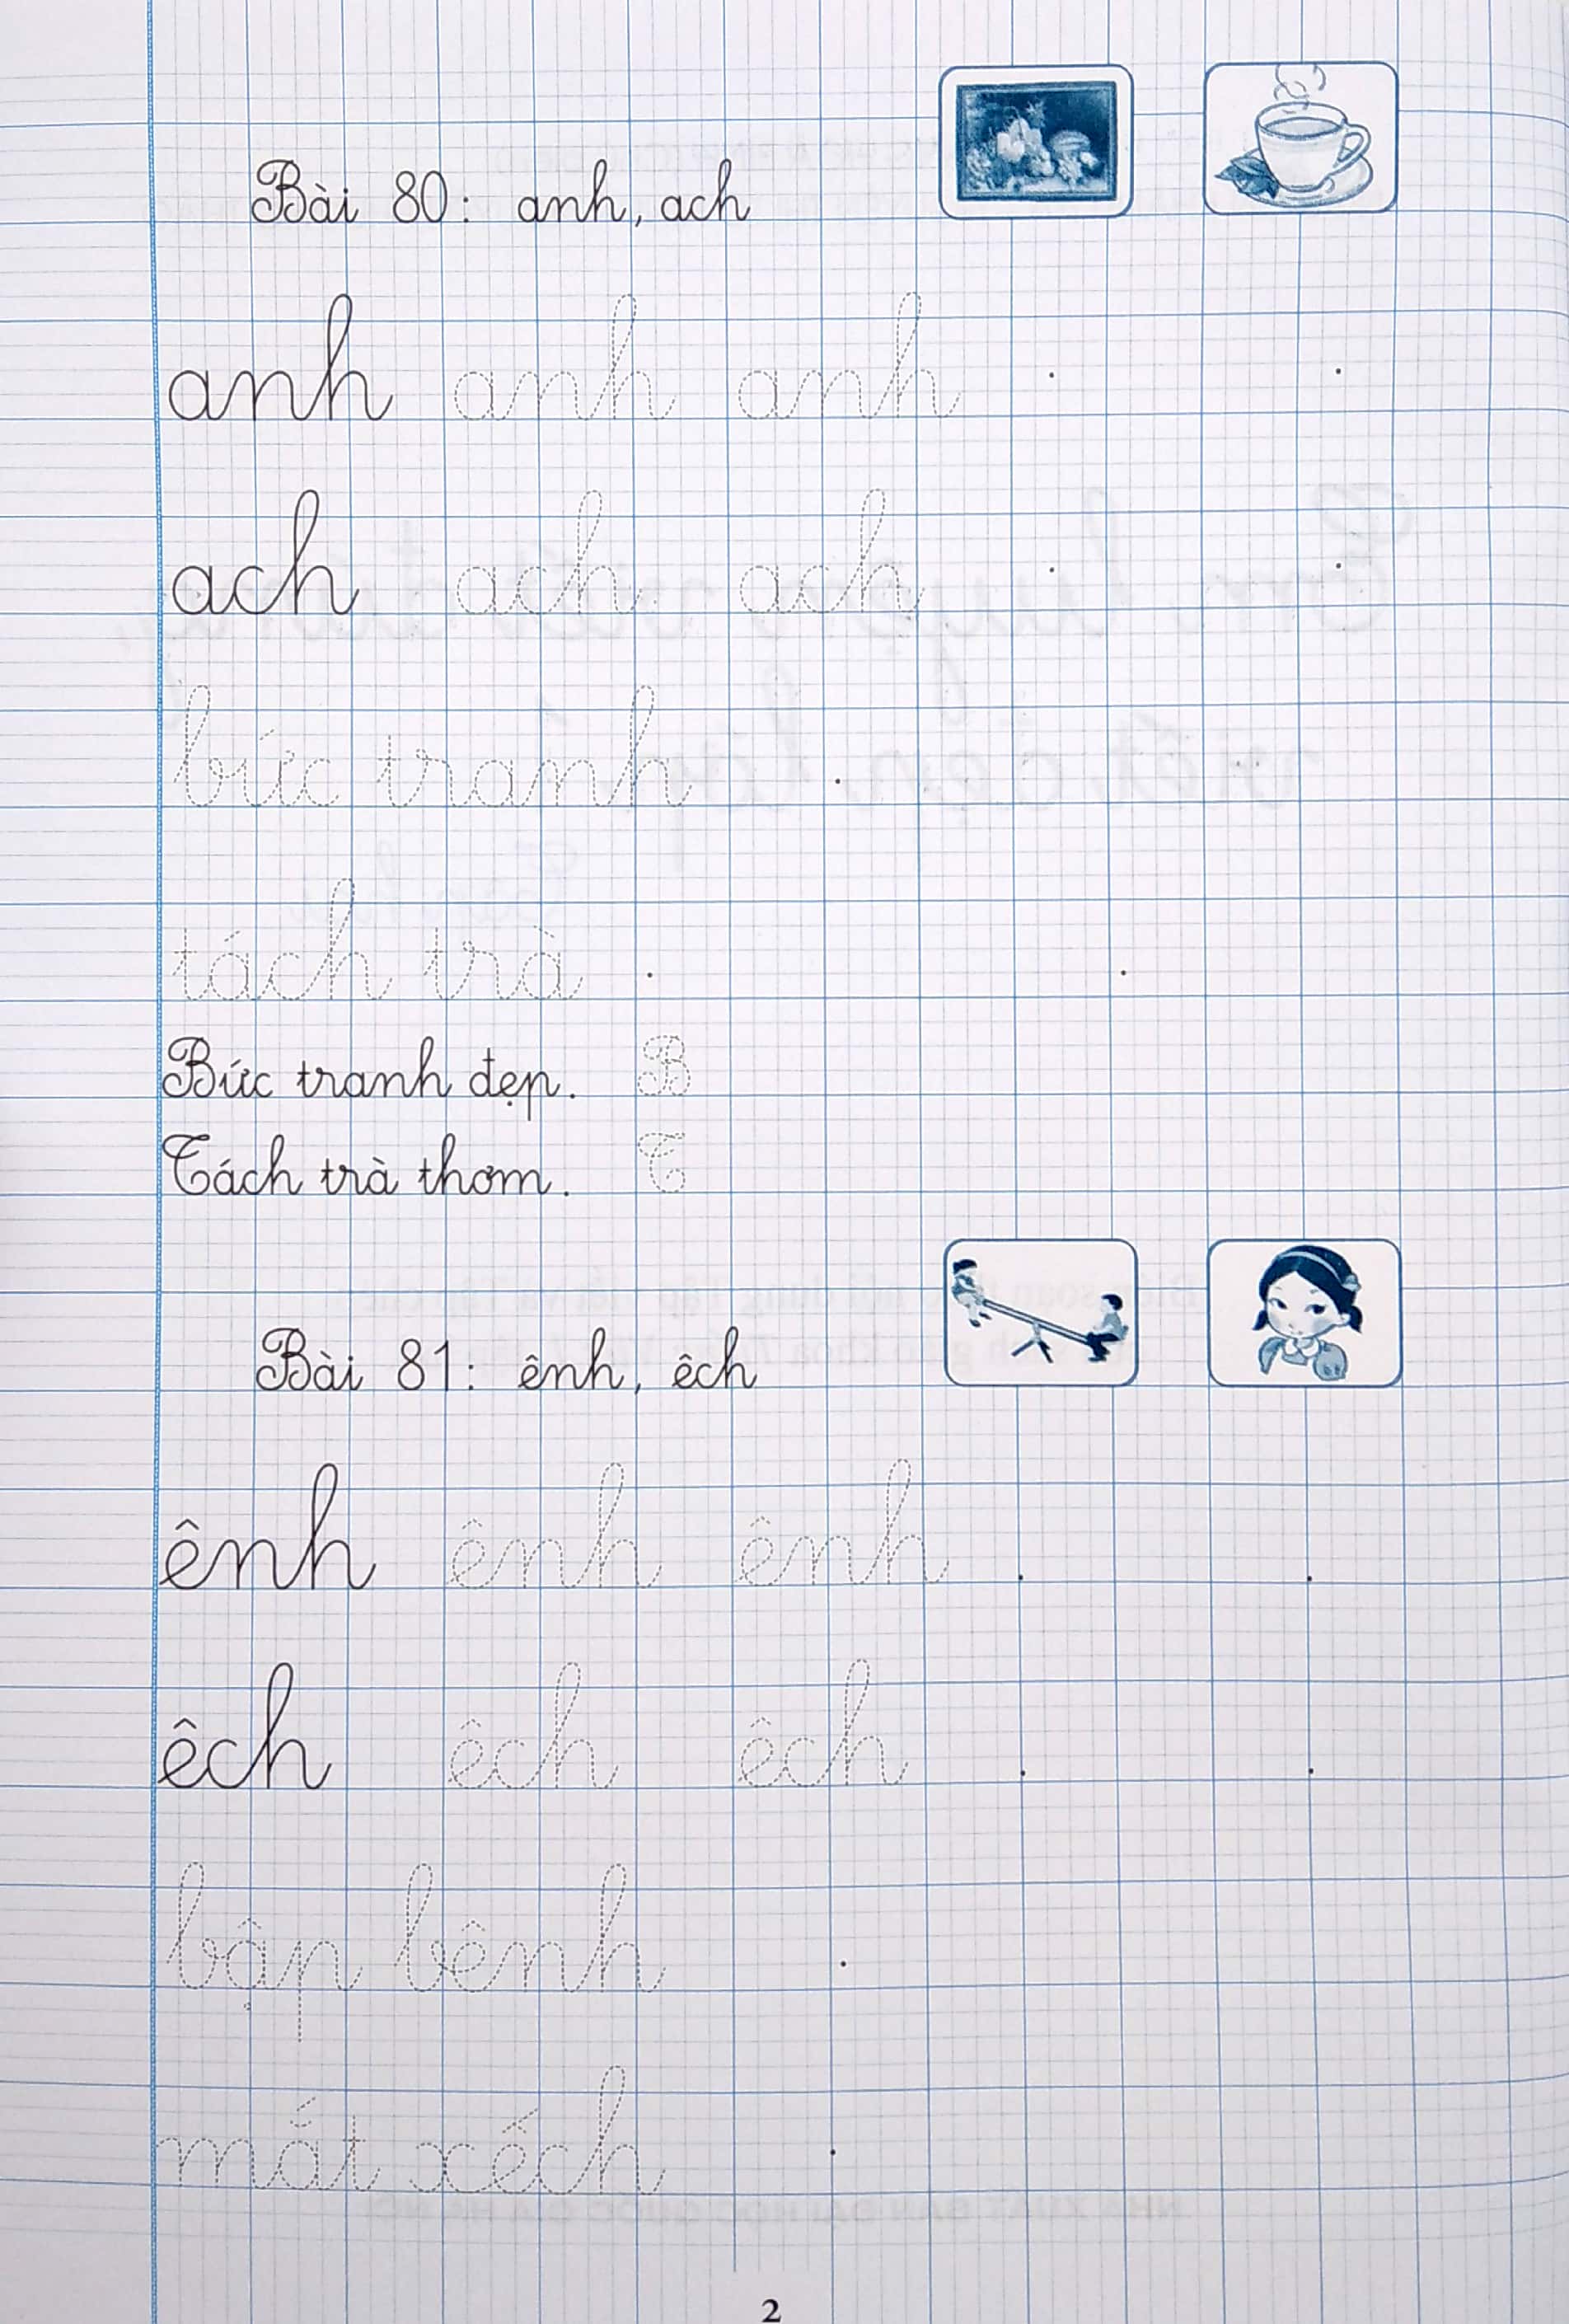 Bài 80: anh, ach
anh anh anh
ach ach ach
bức tranh
tách trà
Bức tranh đẹp. B
Tách trà thơm. T
Bài 81: ênh, êch
ênh ênh ênh
êch êch êch
bập bênh
mắt xếch
2